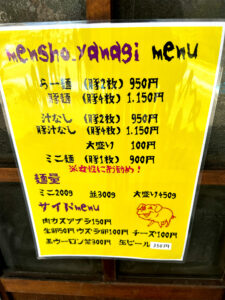 mensho_yanagi menu
らー麺 (豚2枚) 950円
豚麺 (豚4枚) 1.150円
汁なし (豚2枚) 950円
豚汁なし (豚4枚) 1.150円
大盛り 100円
ミニ麺 (豚1枚) 900円
※女性にお勧め!
麺量
ミニ200g 並300g 大盛り+50g
サイドmenu
肉カスアブラ150円
生卵50円 ウズラ卵100円 チーズ100円
黒ウーロン茶300円 缶ビール 350円